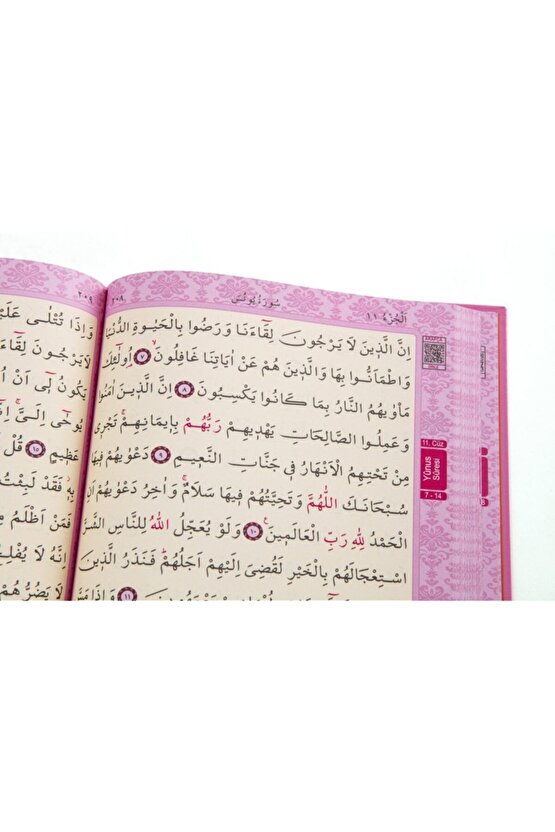 اَلْجُزْءُ ١١
سُورَةُ يُونُسَ
٢٠٨
اِنَّ الَّذ۪ينَ لَا يَرْجُونَ لِقَٓاءَنَا وَرَضُوا بِالْحَيٰوةِ الدُّنْيَا
وَاطْمَاَنُّوا بِهَا وَالَّذ۪ينَ هُمْ عَنْ اٰيَاتِنَا غَافِلُونَۙ ﴿٧﴾ اُو۬لٰٓئِكَ
مَأْوٰيهُمُ النَّارُ بِمَا كَانُوا يَكْسِبُونَ ﴿٨﴾ اِنَّ الَّذ۪ينَ اٰمَنُوا
وَعَمِلُوا الصَّالِحَاتِ يَهْد۪يهِمْ رَبُّهُمْ بِا۪يمَانِهِمْۚ تَجْر۪ي
مِنْ تَحْتِهِمُ الْاَنْهَارُ ف۪ي جَنَّاتِ النَّع۪يمِ ﴿٩﴾ دَعْوٰيهُمْ ف۪يهَا
سُبْحَانَكَ اللّٰهُمَّ وَتَحِيَّتُهُمْ ف۪يهَا سَلَامٌۚ وَاٰخِرُ دَعْوٰيهُمْ اَنِ
الْحَمْدُ لِلّٰهِ رَبِّ الْعَالَم۪ينَ۟ ﴿١٠﴾ وَلَوْ يُعَجِّلُ اللّٰهُ لِلنَّاسِ الشَّرَّ
اسْتِعْجَالَهُمْ بِالْخَيْرِ لَقُضِيَ اِلَيْهِمْ اَجَلُهُمْۜ فَنَذَرُ الَّذ۪ينَ
﴿١١﴾ وَاِذَا مَسَّ
11. Cüz
Yûnus
Sûresi
7 - 14
٢٠٩
وَاِذَا تُتْلٰى عَلَيْ
لَا يَرْجُونَ لِقَٓاءَنَا
يَكُونُ ل۪ٓي اَنْ اُ
يُوحٰٓى اِلَيَّۚ اِنّ۪ٓي
عَظ۪يمٍ ﴿١٥﴾ قُلْ
بِه۪ۘ فَقَدْ لَبِثْتُ
فَمَنْ اَظْلَمُ
اِنَّهُ لَا يُفْلِ
مَا لَا يَضُرُّهُمْ